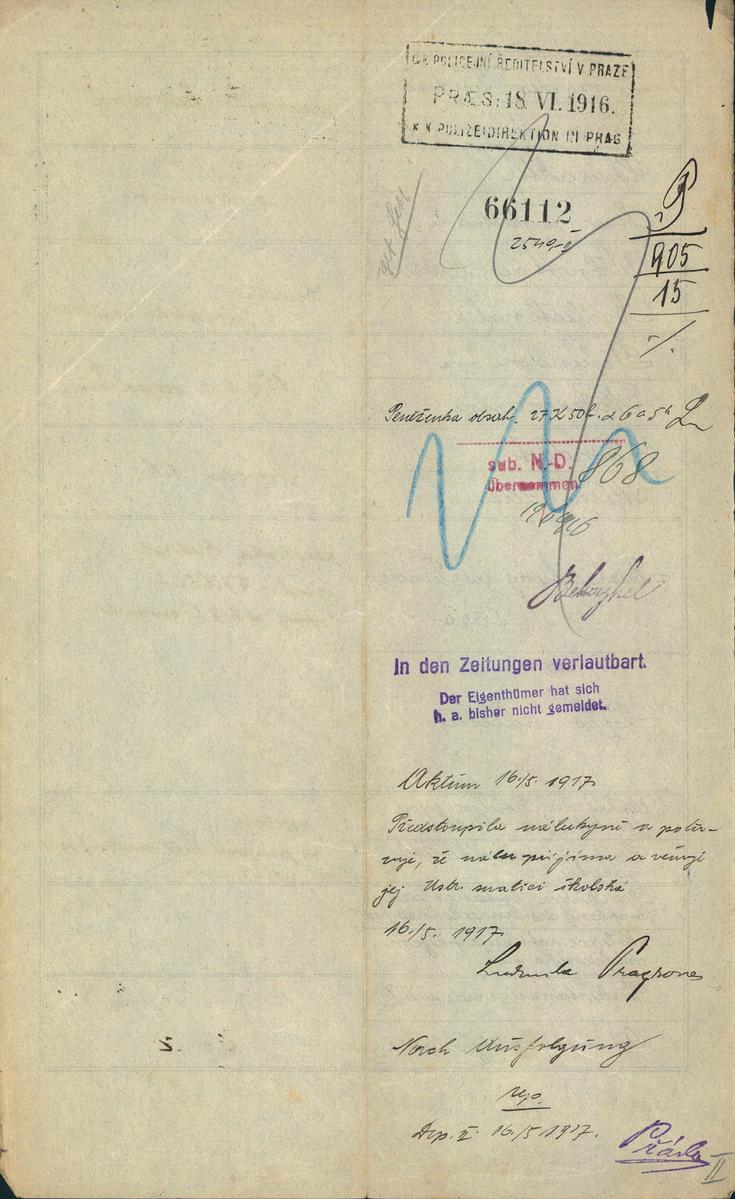 C.K. POLICEJNÍ ŘEDITELSTVÍ V PRAZE
PRÆS: 18 VI. 1916.
K. K. POLIZEIDIREKTION IN PRAG
66112
2549-II
905
15
%
Peněženka obsah. 27 K 50 h.
sub. N.-D. 868
übernommen
In den Zeitungen verlautbart.
Der Eigenthümer hat sich
h. a. bisher nicht gemeldet.
Aktum 16./5. 1917
Předstoupila nálezkyně a potvr-
zuje, že nález přijímá a věnuje
jej Ústř. matici školské
16./5. 1917
Ludmila
Nach Ausfolgung
rep.
Dep. II. 16./5 1917.
II